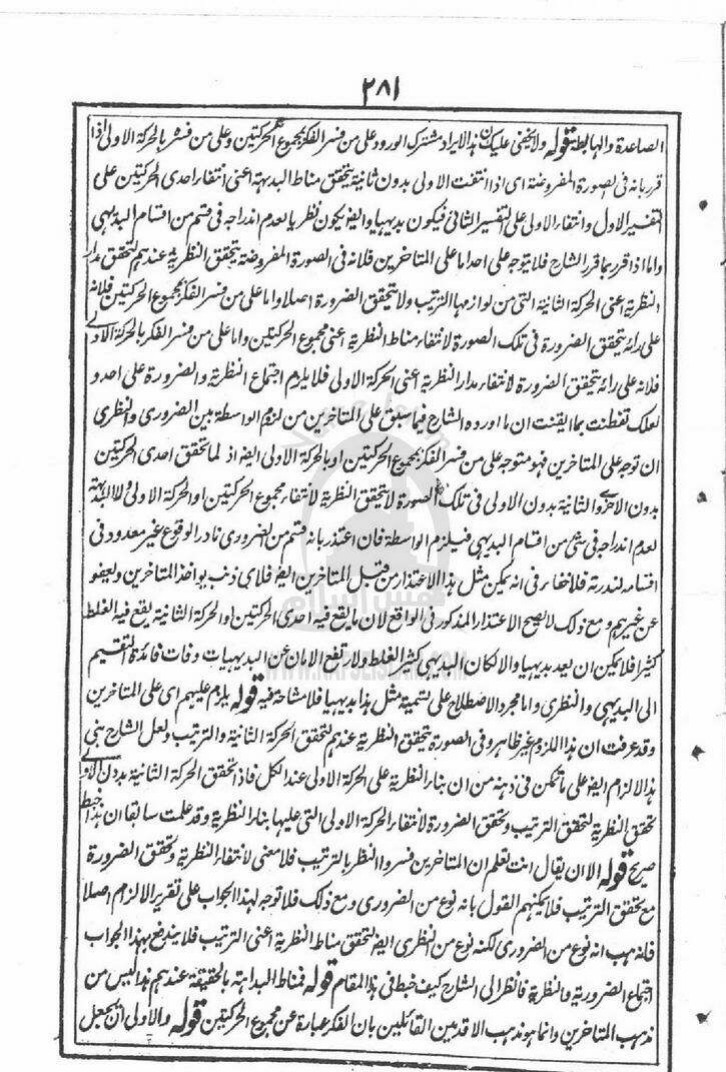 ٢٨١
الصاعدة والهابطة قوله ولا يخفى عليك ان هذا الايراد مشترك الورود على من فسر الفكر بمجموع الحركتين وعلى من فسره بالحركة الاولى اذا
قرر بانه فى الصورة المفروضة اى اذا انتفت الاولى بدون ثانية يتحقق مناط البديهية اعنى انتفاء احدى الحركتين على
التفسير الاول وانتفاء الاولى على التفسير الثانى فيكون بديهيا وايضا يكون نظريا لعدم اندراجه فى قسم من اقسام البديهى
واما اذا قرر بما قرر الشارح فلا يتوجه على احد اما على المتاخرين فلانه فى الصورة المفروضة يتحقق النظرية عندهم لتحقق مدار
النظرية اعنى الحركة الثانية التى من لوازمها الترتيب ولا يتحقق الضرورة اصلا واما على من فسر الفكر بمجموع الحركتين فلانه
على رائه يتحقق الضرورة فى تلك الصورة لانتفاء مناط النظرية اعنى مجموع الحركتين واما على من فسر الفكر بالحركة الاولى
فلانه على رائه يتحقق الضرورة لانتفاء مدار النظرية اعنى الحركة الاولى فلا يلزم اجتماع النظرية والضرورة على احد و
لعلك تفطنت بما ايقنت ان ما اورده الشارح فيما سبق على المتاخرين من لزوم الواسطة بين الضرورى والنظرى
ان توجه على المتاخرين فهو متوجه على من فسر الفكر بمجموع الحركتين او بالحركة الاولى ايضا اذ لما تحقق احدى الحركتين
بدون الاخرى والثانية بدون الاولى فى تلك الصورة لا يتحقق النظرية لانتفاء مجموع الحركتين او الحركة الاولى ولا البديهة
لعدم اندراجه فى شئ من اقسام البديهى فيلزم الواسطة فان اعتذر بانه قسم من الضرورى نادر الوقوع غير معدود فى
اقسامه لندرته فلا خفاء فى انه يمكن مثل هذا الاعتذار من قبل المتاخرين ايضا فلاى ذنب يواخذ المتاخرين ويعفو
عن غيرهم ومع ذلك لا يصح الاعتذار المذكور فى الواقع لان ما يقع فيه احدى الحركتين او الحركة الثانية يقع فيه الغلط
كثيرا فلا يمكن ان يعد بديهيا والا لكان البديهى كثير الغلط ولا رتفع الامان عن البديهيات وفات فائدة التقسيم
الى البديهى والنظرى واما مجرد الاصطلاح على تسمية مثل هذا بديهيا فلا مشاحة فيه قوله يلزم عليهم اى على المتاخرين
وقد عرفت ان هذا اللزوم غير ظاهر وفى الصورة يتحقق النظرية عندهم لتحقق الحركة الثانية والترتيب ولعل الشارح بنى
هذا الالزام ايضا على ما تمكن فى ذهنه من ان بناء النظرية على الحركة الاولى عند الكل فاذا تحقق الحركة الثانية بدون الاولى
تحقق النظرية لتحقق الترتيب وتحقق الضرورة لانتفاء الحركة الاولى التى عليها بناء النظرية وقد علمت سابقا ان هذا خبط
صريح قوله الا ان يقال انت تعلم ان المتاخرين فسروا النظر بالترتيب فلا معنى لانتفاء النظرية وتحقق الضرورة
مع تحقق الترتيب فلا يمكنهم القول بانه نوع من الضرورى ومع ذلك فلا توجه لهذا الجواب على تقرير الالزام اصلا
فلنذهب انه نوع من الضرورى لكنه نوع من النظرى ايضا لتحقق مناط النظرية اعنى الترتيب فلا يندفع بهذا الجواب
اجتماع الضرورية والنظرية فانظر الى الشارح كيف خبط فى هذا المقام قوله فمناط البداهة بالحقيقة عندهم هذا ليس من
مذهب المتاخرين وانما هو مذهب الاقدمين القائلين بان الفكر عبارة عن مجموع الحركتين قوله والاولى ان يجعل
WWW.NAFSEISLAM.COM